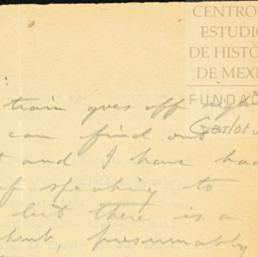 CENTRO
ESTUDIO
DE HISTÓ
DE MEXI
FUNDA
train goes off
can find out
and I have had
of speaking to
but there is a
presumably